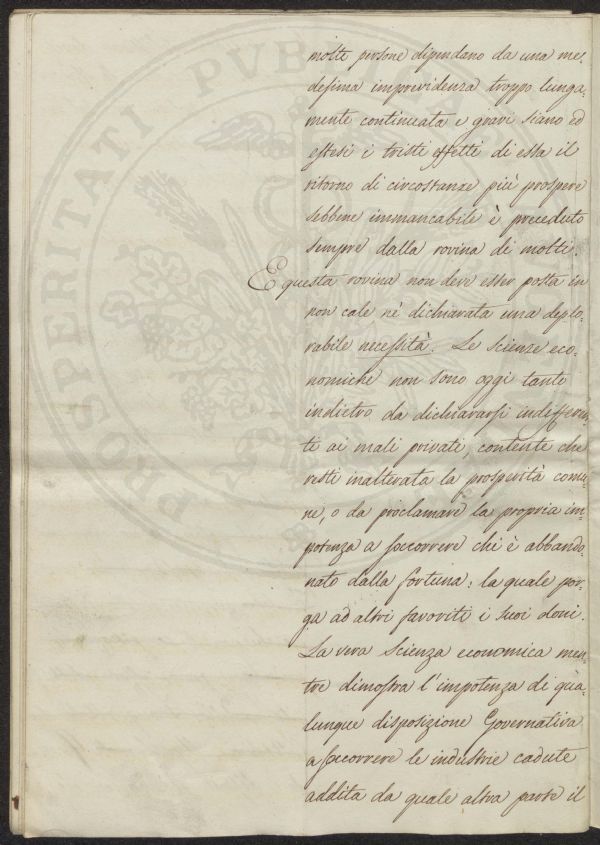 molte persone dipendano da una me-
desima imprevidenza troppo lunga-
mente continuata e gravi siano ed
estesi i tristi effetti di essa il
ritorno di circostanze più prospere
sebbene immancabile è preceduto
sempre dalla rovina di molti.
E questa rovina non deve esser posta in
non cale nè dichiarata una deplo-
rabile necessità. Le scienze eco-
nomiche non sono oggi tanto
indietro da dichiararsi indifferen-
te ai mali privati, contente che
resti inalterata la prosperità comu-
ne, o da proclamare la propria im-
potenza a soccorrere chi è abbando-
nato dalla fortuna: la quale por-
ga ad altri favoriti i suoi doni.
La vera Scienza economica men-
tre dimostra l'impotenza di qua-
lunque disposizione Governativa
a soccorrere le industrie cadute
addita da quale altra parte il
PROSPERITATI PUBLICAE